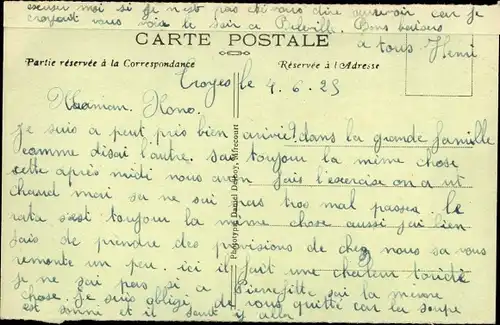 excuser moi si je n'est pas chi vous dire aurevoir car je
croyait vous voir le soir a Belville. Bons baisers
a tous Henri
CARTE POSTALE
Partie réservée à la Correspondance
Réservée à l'Adresse
Troyes le 4.6.25
Maman. Nono.
je suis a peut près bien arrivé dans la grande famille
comme disai l'autre. sai toujour la même chose
cette après midi nous avon fais l'exercise on a ut
chaud mai sa ne sai pas trop mal passer. le
rata s'est toujour la même chose aussi jai bien
fais de prendre des provisions de chez nous sa vous
remonte un peu. ici il fait une chaleur toride
je ne sai pas si a Pierrefitte sai la même
chose. Je suis obligé de vous quitté car la soupe
est sonné et il faut y aller
Phototypie Daniel Delboy, Mirecourt